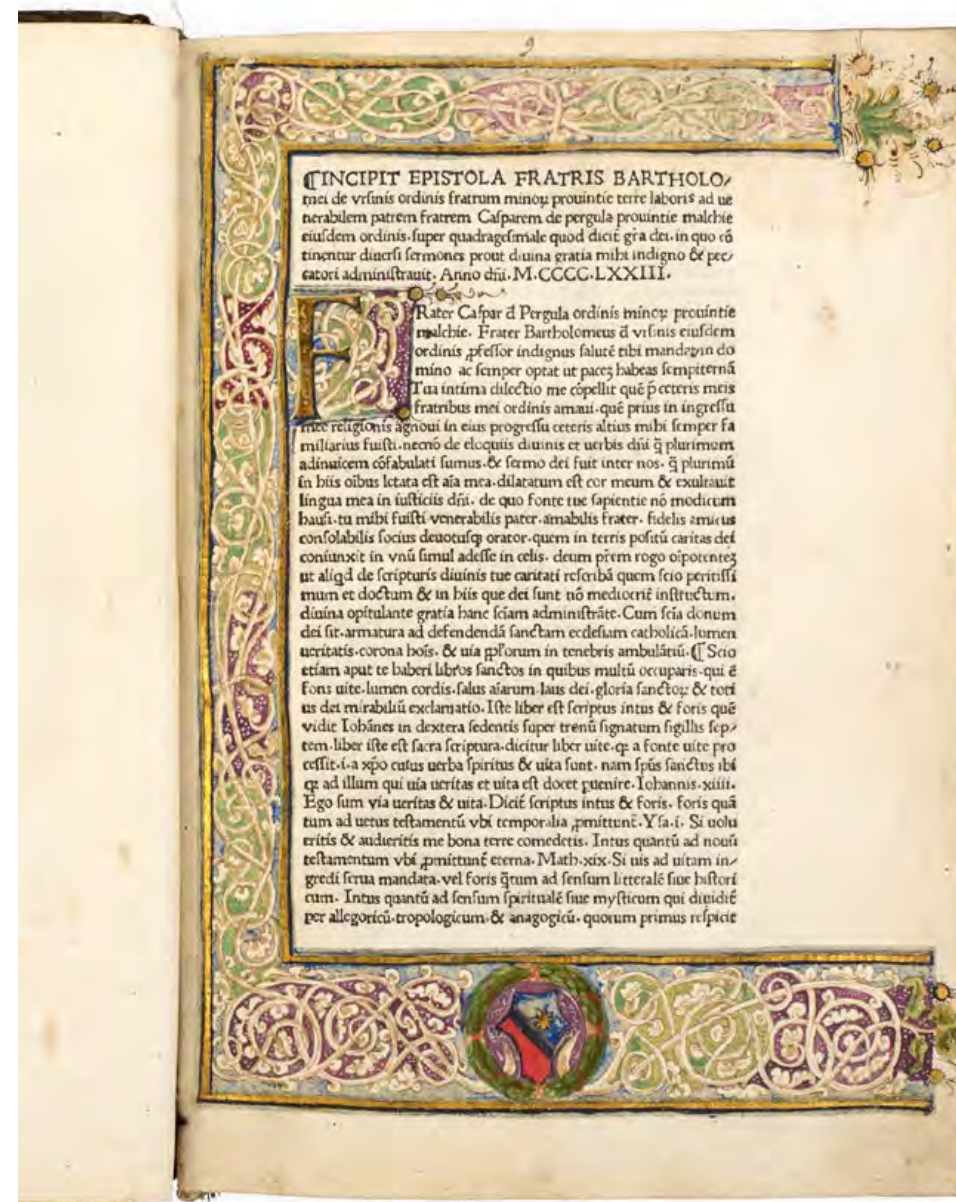 9
⸿INCIPIT EPISTOLA FRATRIS BARTHOLO⸗
mei de vrſinis ordinis fratrum minoꝝ prouintie terre laboris ad ue
nerabilem patrem fratrem Caſparem de pergula prouintie malchie
eiuſdem ordinis·ſuper quadrageſimale quod dicit̄ gr̄a dei·in quo cō
tinentur diuerſi ſermones prout diuina gratia mihi indigno & pec⸗
catori adminiſtrauit· Anno dñi·M·CCCC·LXXIII·
FRater Caſpar đ Pergula ordinis minoꝝ prouintie
malchie· Frater Bartholomeus đ vrſinis eiuſdem
ordinis ꝓfeſſor indignus ſalutē tibi in do
mino ac ſemper optat ut paceꝫ habeas ſempiternā
Tua intima dilectio me cōpellit quē p̄ ceteris meis
fratribus mei ordinis amaui·quē prius in ingreſſu
mee religionis agnoui in eius progreſſu ceteris altius mihi ſemper fa
miliarius fuiſti·necnō de eloquiis diuinis et uerbis dñi q̄ plurimum
adinuicem cōfabulati ſumus·& ſermo dei fuit inter nos· q̄ plurimū
in hiis oībus letata eſt aīa mea·dilatatum eſt cor meum & exultauit
lingua mea in iuſticiis dñi· de quo fonte tue ſapientie nō modicum
hauſi·tu mihi fuiſti venerabilis pater·amabilis frater· fidelis amicus
conſolabilis ſocius deuotuſqꝫ orator·quem in terris poſitū caritas dei
coniunxit in vnū ſimul adeſſe in celis· deum pr̄em rogo oīpotenteꝫ
ut aliqd de ſcripturis diuinis tue caritati reſcribā quem ſcio peritiſſi
mum et doctum & in hiis que dei ſunt nō mediocrit̄ inſtructum·
diuina opitulante gratia hanc ſciam adminiſtrāte·Cum ſcīa donum
dei ſit·armatura ad defendendā ſanctam eccleſiam catholicā·lumen
ueritatis·corona hoīs· & uia ipſorum in tenebris ambulātiū·⸿Scio
etiam aput te haberi libros ſanctos in quibus multū occuparis·qui ē
fons uite·lumen cordis·ſalus aīarum·laus dei·gloria ſanctoꝝ & toti
us dei mirabiliū exclamatio·Iſte liber eſt ſcriptus intus & foris quē
vidit Iohānes in dextera ſedentis ſuper trenū ſignatum ſigillis ſep⸗
tem·liber iſte eſt ſacra ſcriptura·dicitur liber uite·qꝫ a fonte uite pro
ceſſit·i·a xp̄o cuius uerba ſpiritus & uita ſunt· nam ſpūs ſanctus ibi
qꝫ ad illum qui uia ueritas et uita eſt docet ꝑuenire·Iohannis·xiiii·
Ego ſum via ueritas & uita·Dicit̄ ſcriptus intus & foris· foris quā
tum ad uetus teſtamentū vbi temporalia ꝓmittunt̄·Yſa·i· Si uolu
eritis & audieritis me bona terre comedetis· Intus quantū ad nouū
teſtamentum vbi ꝓmittunt̄ eterna·Math·xix·Si uis ad uitam in⸗
gredi ſerua mandata·vel foris q̄tum ad ſenſum litteralē ſiue hiſtori
cum· Intus quantū ad ſenſum ſpiritualē ſiue myſticum qui diuidit̄
per allegoricū·tropologicum·& anagogicū· quorum primus reſpicit